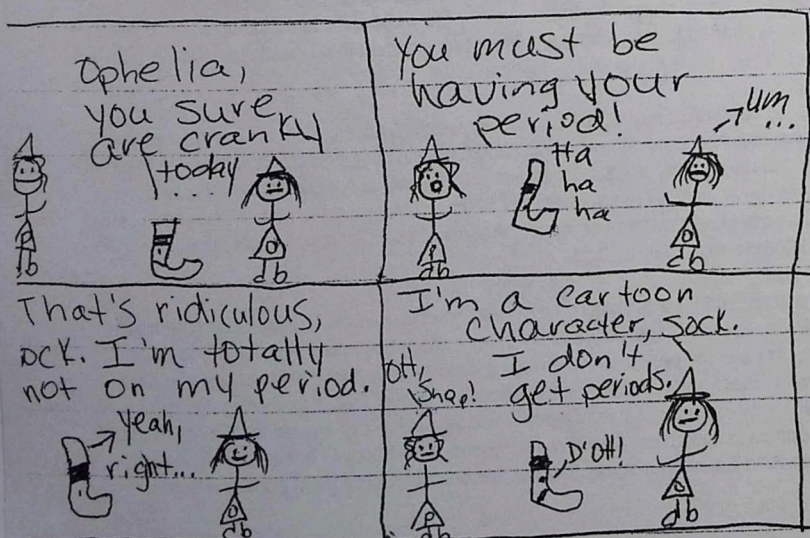 Ophelia,
you sure
are cranky
today
....
You must be
having your
period!
Ha
ha
ha
um
...
That's ridiculous,
ock. I'm totally
not on my period.
Yeah,
right...
I'm a cartoon
character, sock.
I don't
get periods.
OH,
Snap!
D'OH!